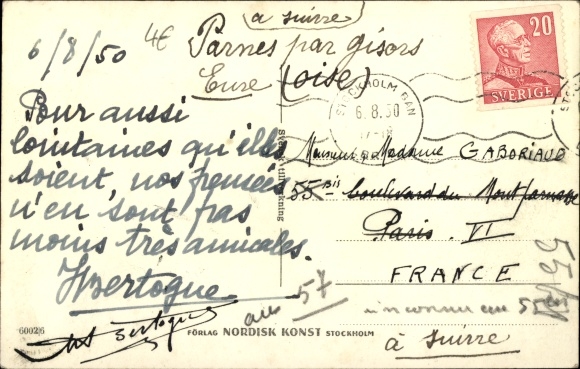 à suivre
6/8/50
4€
Parnes par gisors
Eure (oise)
20
SVERIGE
STOCKHOLM BAN
6.8.50
17-18
Pour aussi
lointaines qu'elles
soient, nos pensées
n'en sont pas
moins très amicales.
HBertogne
Bertogne
Monsieur Madame GABORIAUD
55 bis boulevard du Montparnasse
Paris VI
FRANCE
au 57
inconnu au 55 bis
à suivre
60026
FÖRLAG NORDISK KONST STOCKHOLM
Svensk tillverkning